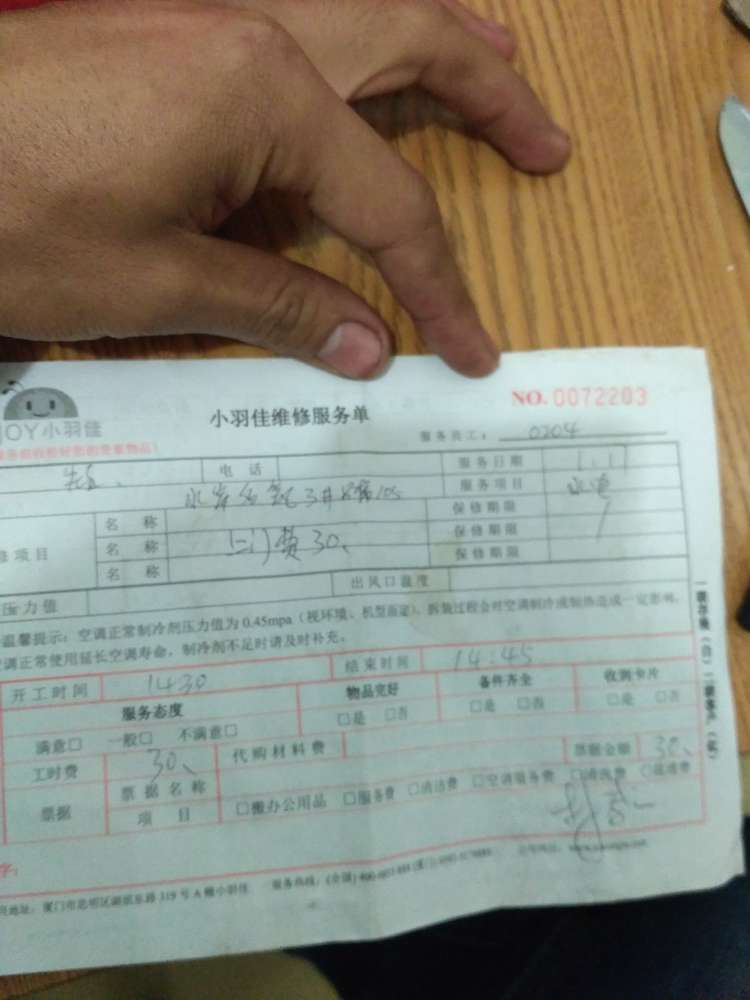 NO. 0072203
JOY小羽佳 小羽佳维修服务单
服务员工: 0204
电话 服务日期 1.17
服务项目 水电
名称 保修期限
修项目 名称 上门费30、 保修期限
名称 保修期限
压力值 出风口温度
温馨提示:空调正常制冷剂压力值为0.45mpa(视环境、机型而定),拆装过程会对空调制冷或制热造成一定影响,
空调正常使用延长空调寿命,制冷剂不足时请及时补充。
开工时间 1430 结束时间 14:45
服务态度 物品完好 备件齐全 收到卡片
满意□ 一般□ 不满意□ □是 □否 □是 □否 □是 □否
工时费 30、 代购材料费 票据金额 30、
票据 票据名称
项目 □搬办公用品 □服务费 □清洁费 □空调服务费
司地址:厦门市思明区湖滨东路319号A幢小羽佳 服务热线:(全国)